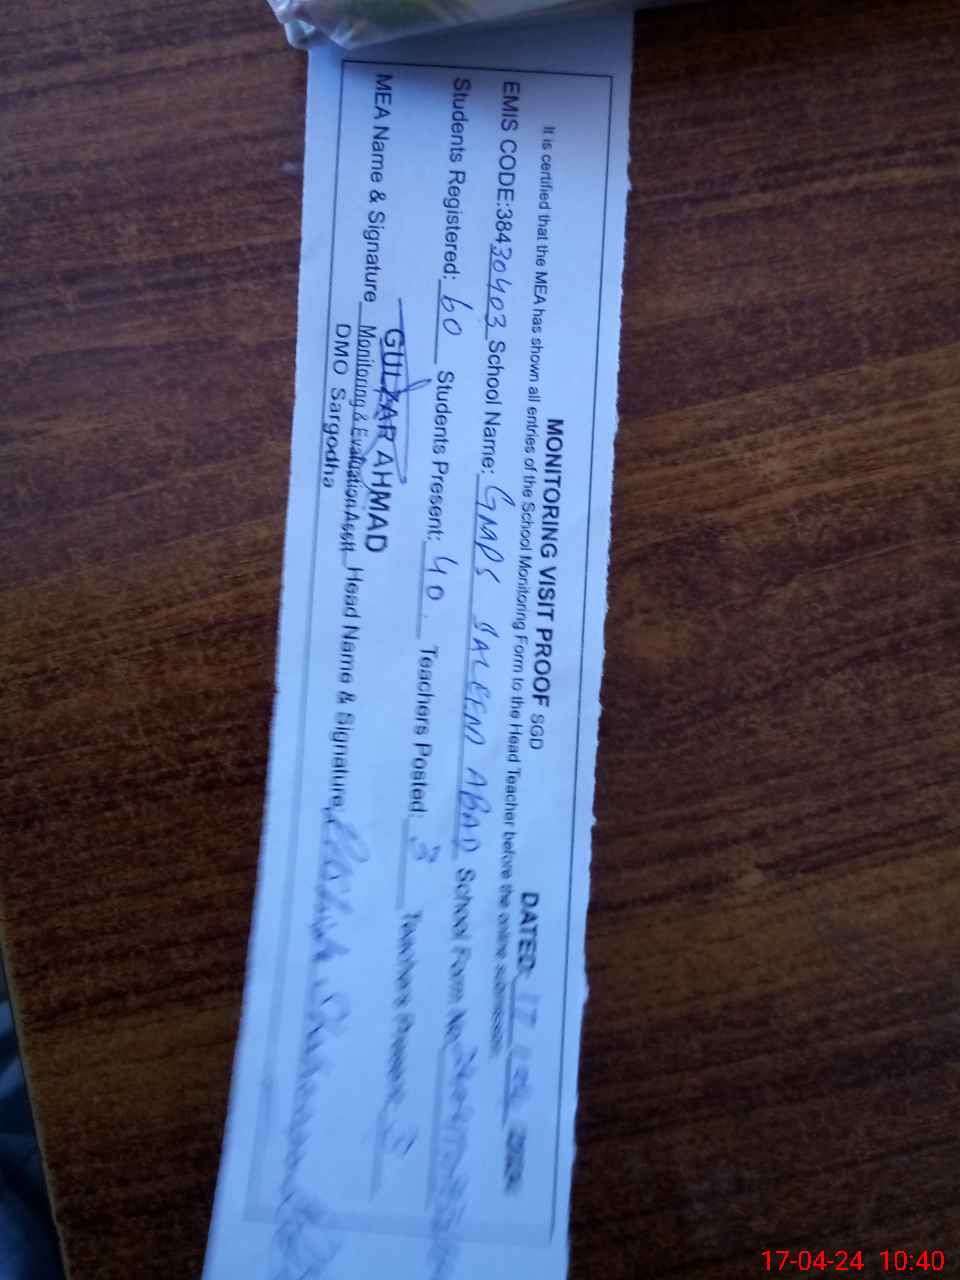 MONITORING VISIT PROOF SGD DATED: 17
It is certified that the MEA has shown all entries of the School Monitoring Form to the Head Teacher before the online submission.
EMIS CODE:38430403 School Name: GMPS SALEEM ABAD School Form No.
Students Registered: 60 Students Present: 40 Teachers Posted: 3 Teachers Present: 3
MEA Name & Signature GULZAR AHMAD Head Name & Signature
Monitoring & Evaluation Asstt
DMO Sargodha
17-04-24 10:40